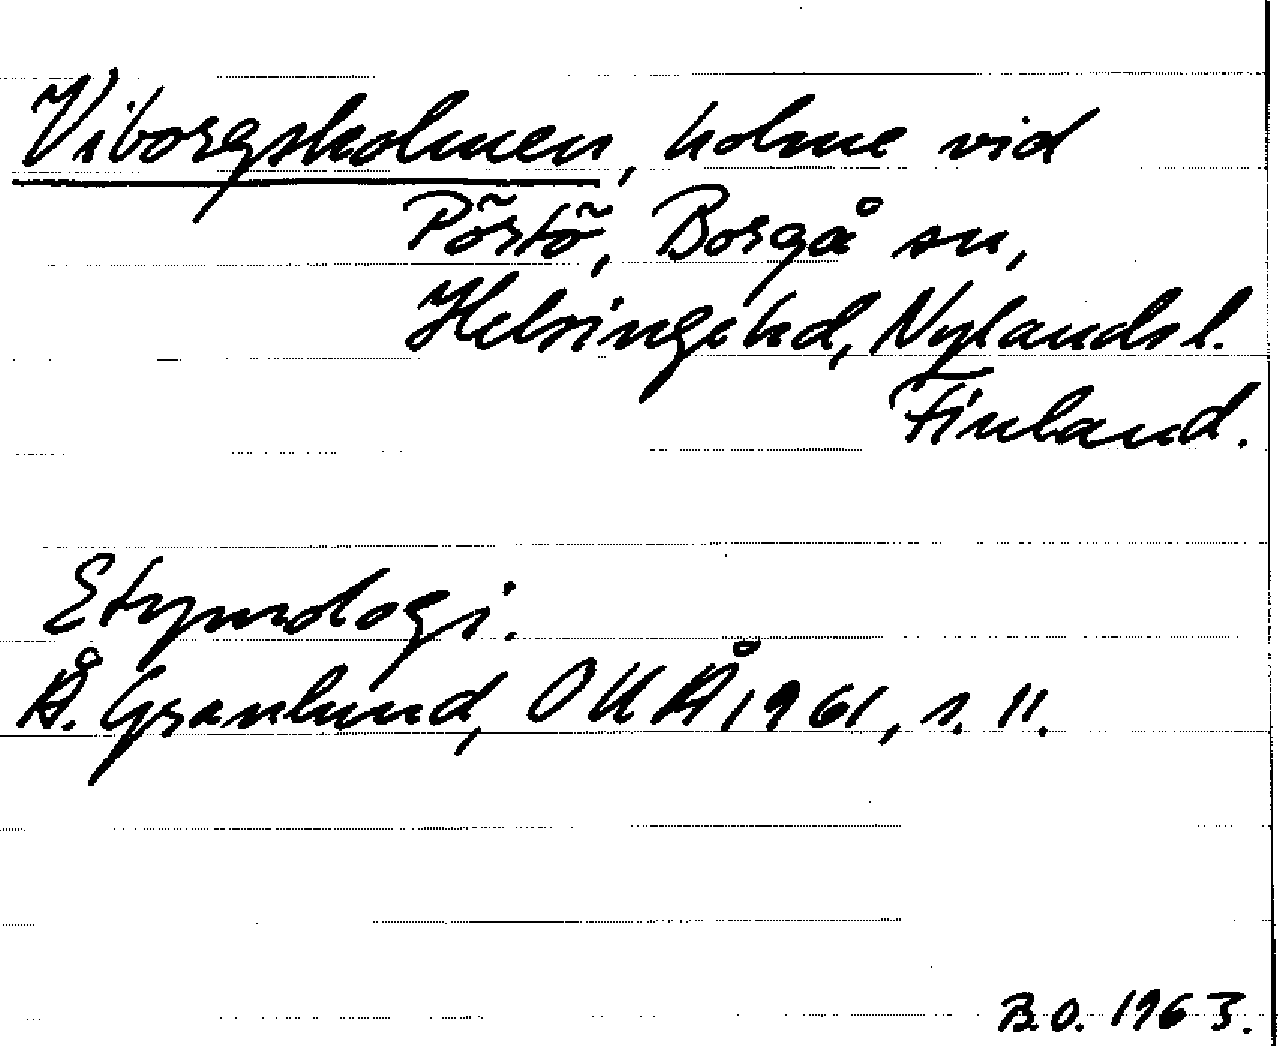 Viborgsholmen, holme vid
Pörtö, Borgå sn,
Helsinge hd, Nylands l.
Finland.
Etymologi.
Å. Granlund, OUÅ 1961, s. 11.
B.O. 1963.